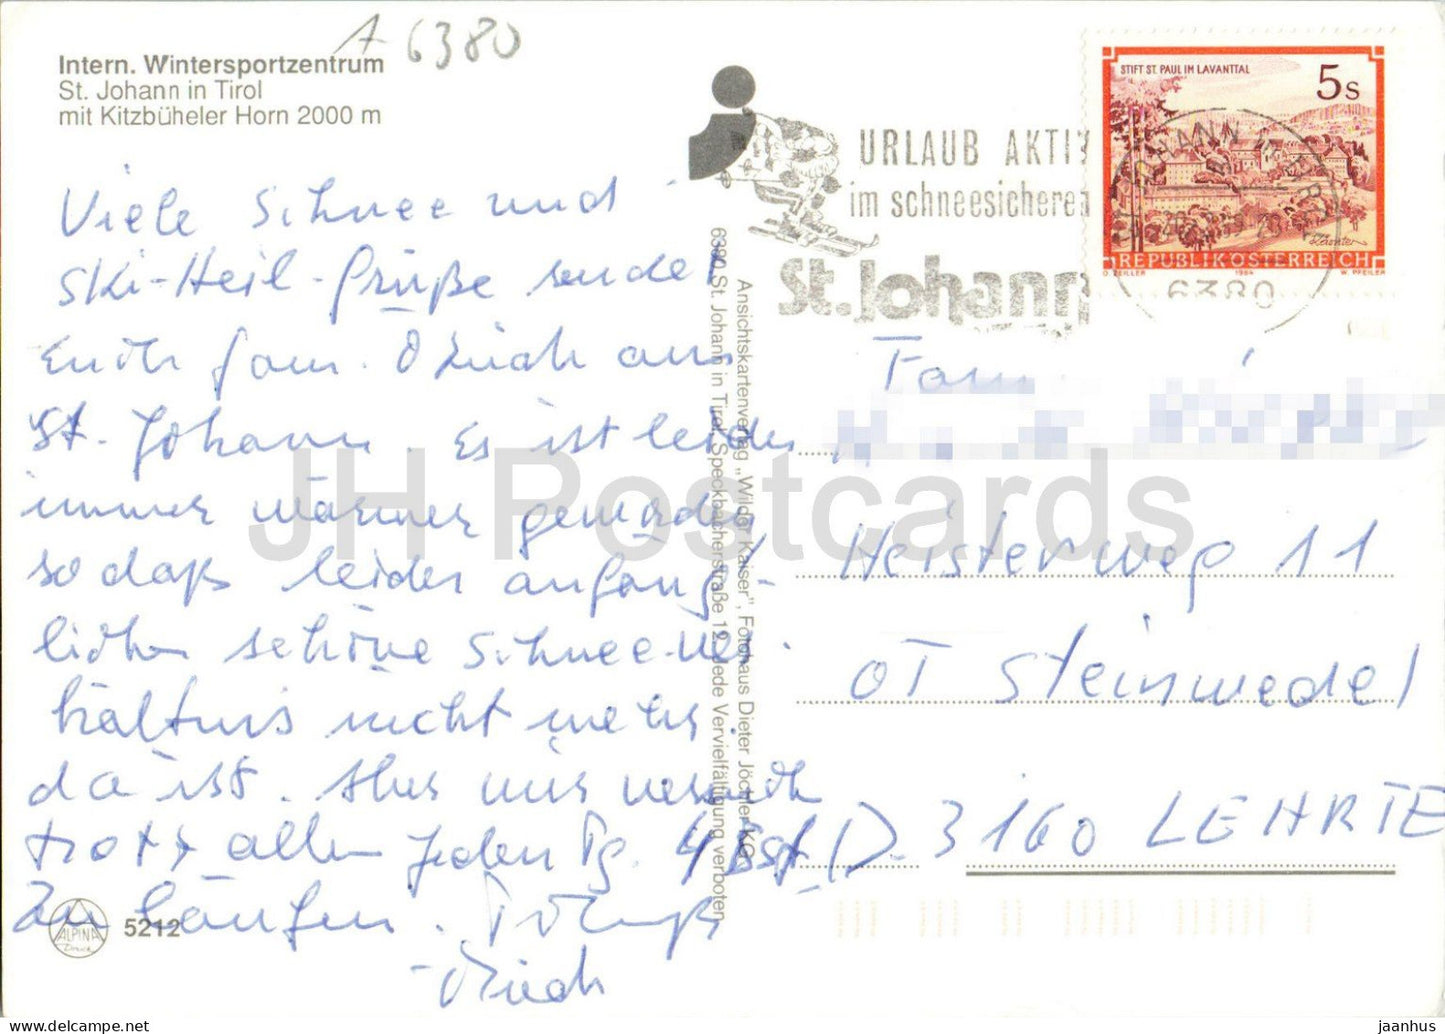 A 6380
Intern. Wintersportzentrum
St. Johann in Tirol
mit Kitzbüheler Horn 2000 m
Viele Schnee und
Ski-Heil-Grüße sendet
Euch Fam. aus
St. Johann. Es ist leider
immer wärmer geworden
so daß leider anfäng-
lichen schöne Schneever-
hältnis nicht mehr
da ist. Aber wir
trotz allem jeden Tg. 4 Std.
zu laufen.
5212
ALPINA
Druck
Ansichtskartenverlag „Wilder Kaiser", Fotohaus Dieter Jöchler KG
6380 St. Johann in Tirol, Speckbacherstraße 19, Jede Vervielfältigung verboten
URLAUB AKTIV
im schneesicheren
St. Johann
STIFT ST. PAUL IM LAVANTTAL
5 S
REPUBLIK ÖSTERREICH
O. ZEILLER 1984 W. PFEILER
6380
Fam
Heisterweg 11
OT Steinwedel
D-3160 LEHRTE
JH Postcards
jaanhus
www.delcampe.net